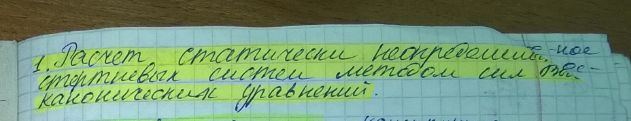 1. Расчет статически неопределимых
стержневых систем методом сил
канонических уравнений.